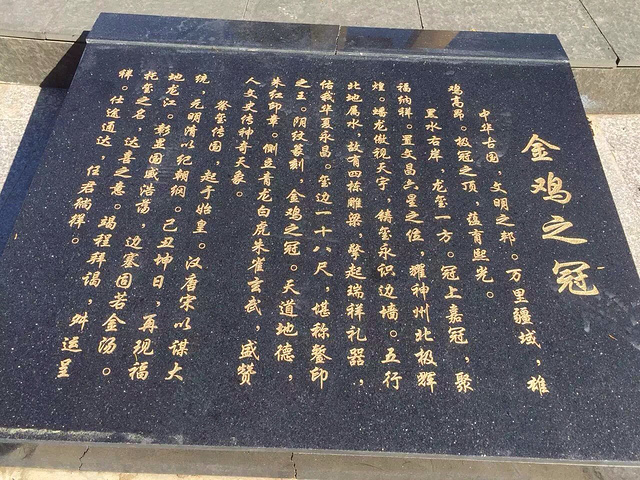 金鸡之冠
中华古国，文明之邦。万里疆域，雄
鸡高昂。极冠之顶，蕴育熙光。
黑水右岸，龙玺一方。冠上嘉冠，聚
福纳祥。置文昌六星之位，耀神州北极辉
煌。蟠龙傲视天宇，铸玺永识边墙。五行
北地属水，故有四栋雕梁，擎起瑞祥礼器，
佑我华夏永昌。玺边一十八尺，堪称鳌印
之王。阴纹篆刻 金鸡之冠。天道地德，
朱红印章。侧立青龙白虎朱雀玄武，盛赞
人文史传神奇天象。
鳌玺传国，起于始皇。汉唐宋以谋大
统，元明清以纪朝纲。己丑坤日，再现福
地龙江。彰显国威浩荡，边塞固若金汤。
托玺之名，达喜之意。竭程拜谒，舛运呈
祥。仕途通达，任君徜祥。